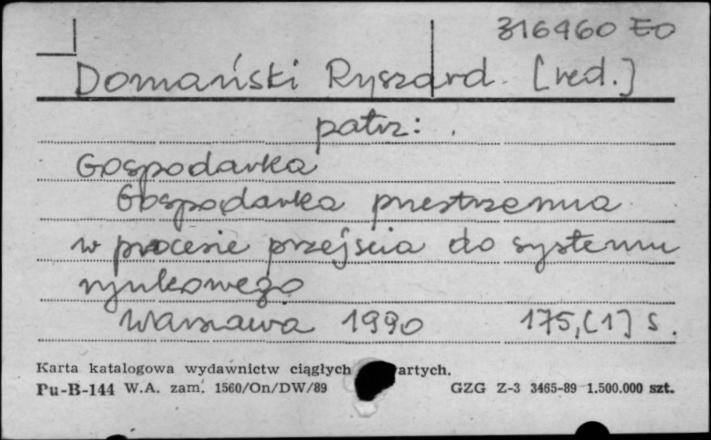 316460 EO
Domański Ryszard. [red.]
patrz:
Gospodarka
Gospodarka przestrzenna
w procesie przejścia do systemu
rynkowego
Warszawa 1990 175,[1] s.
Karta katalogowa wydawnictw ciągłych artych.
Pu-B-144 W.A. zam. 1560/On/DW/89 GZG Z-3 3465-89 1.500.000 szt.